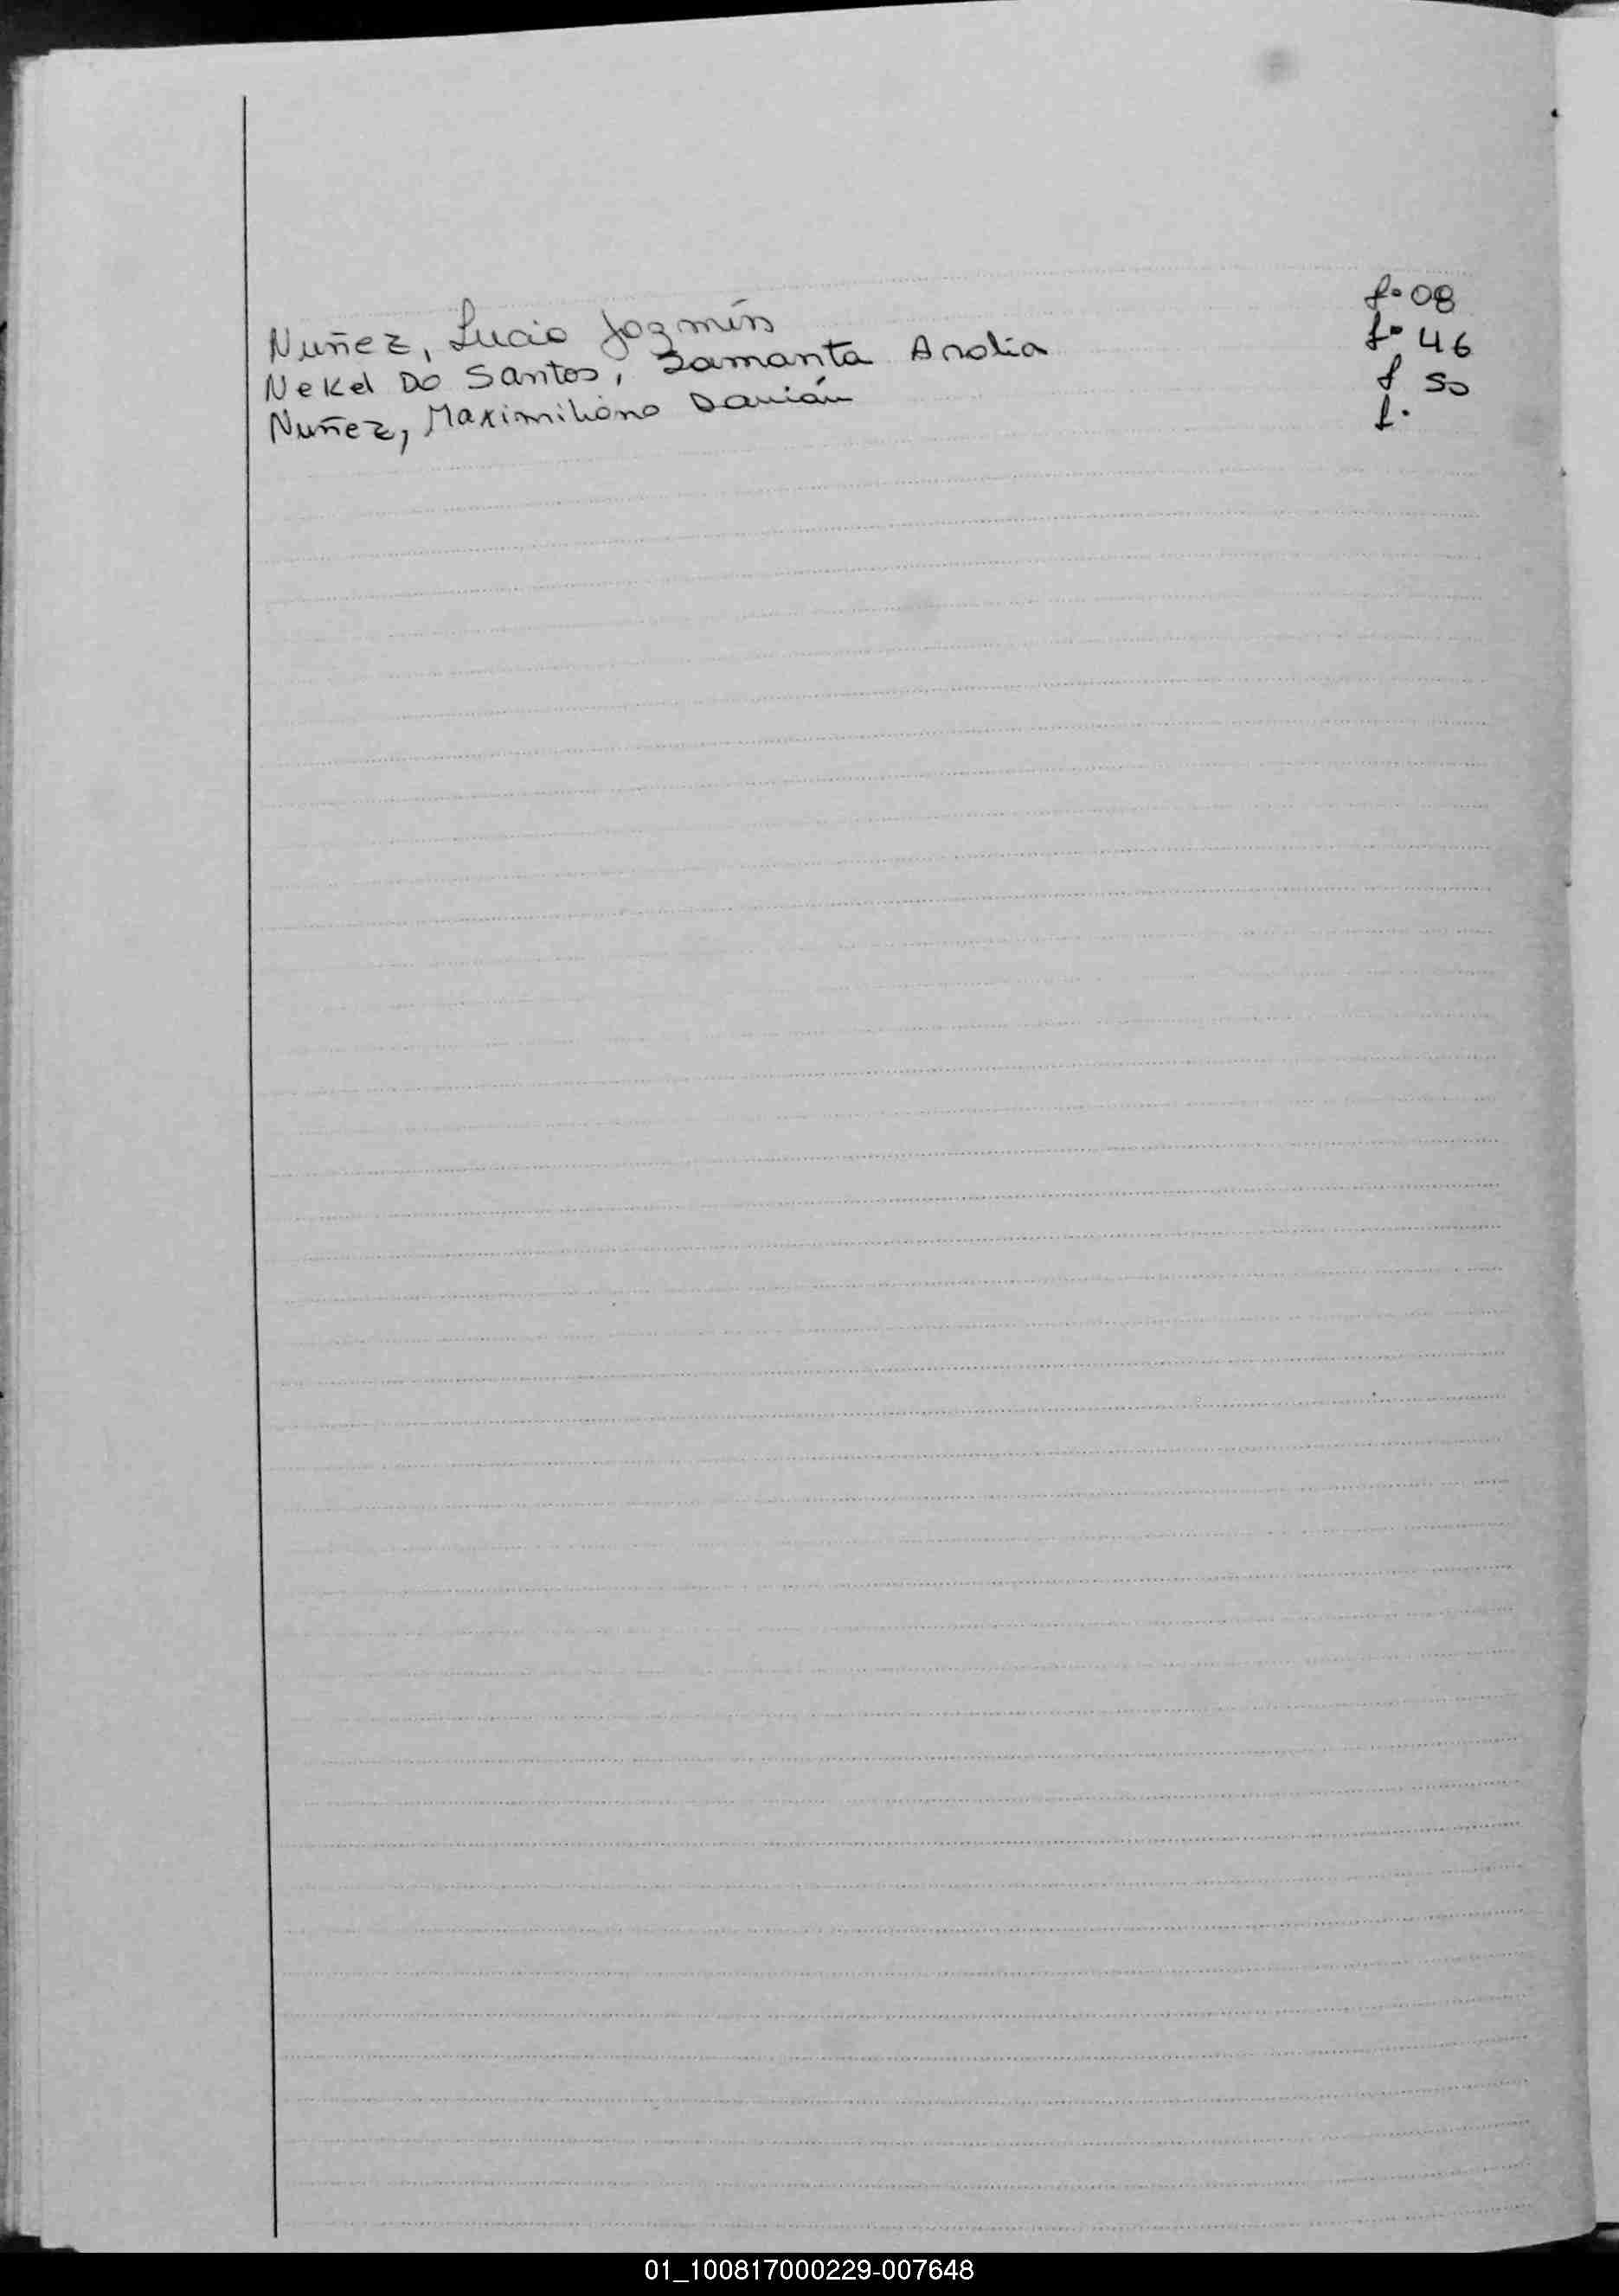 Nuñez, Lucia Jazmín f° 08
Nekel Do Santos, Samanta Analia f° 46
Nuñez, Maximiliano Damián f 50
f.
01_100817000229-007648